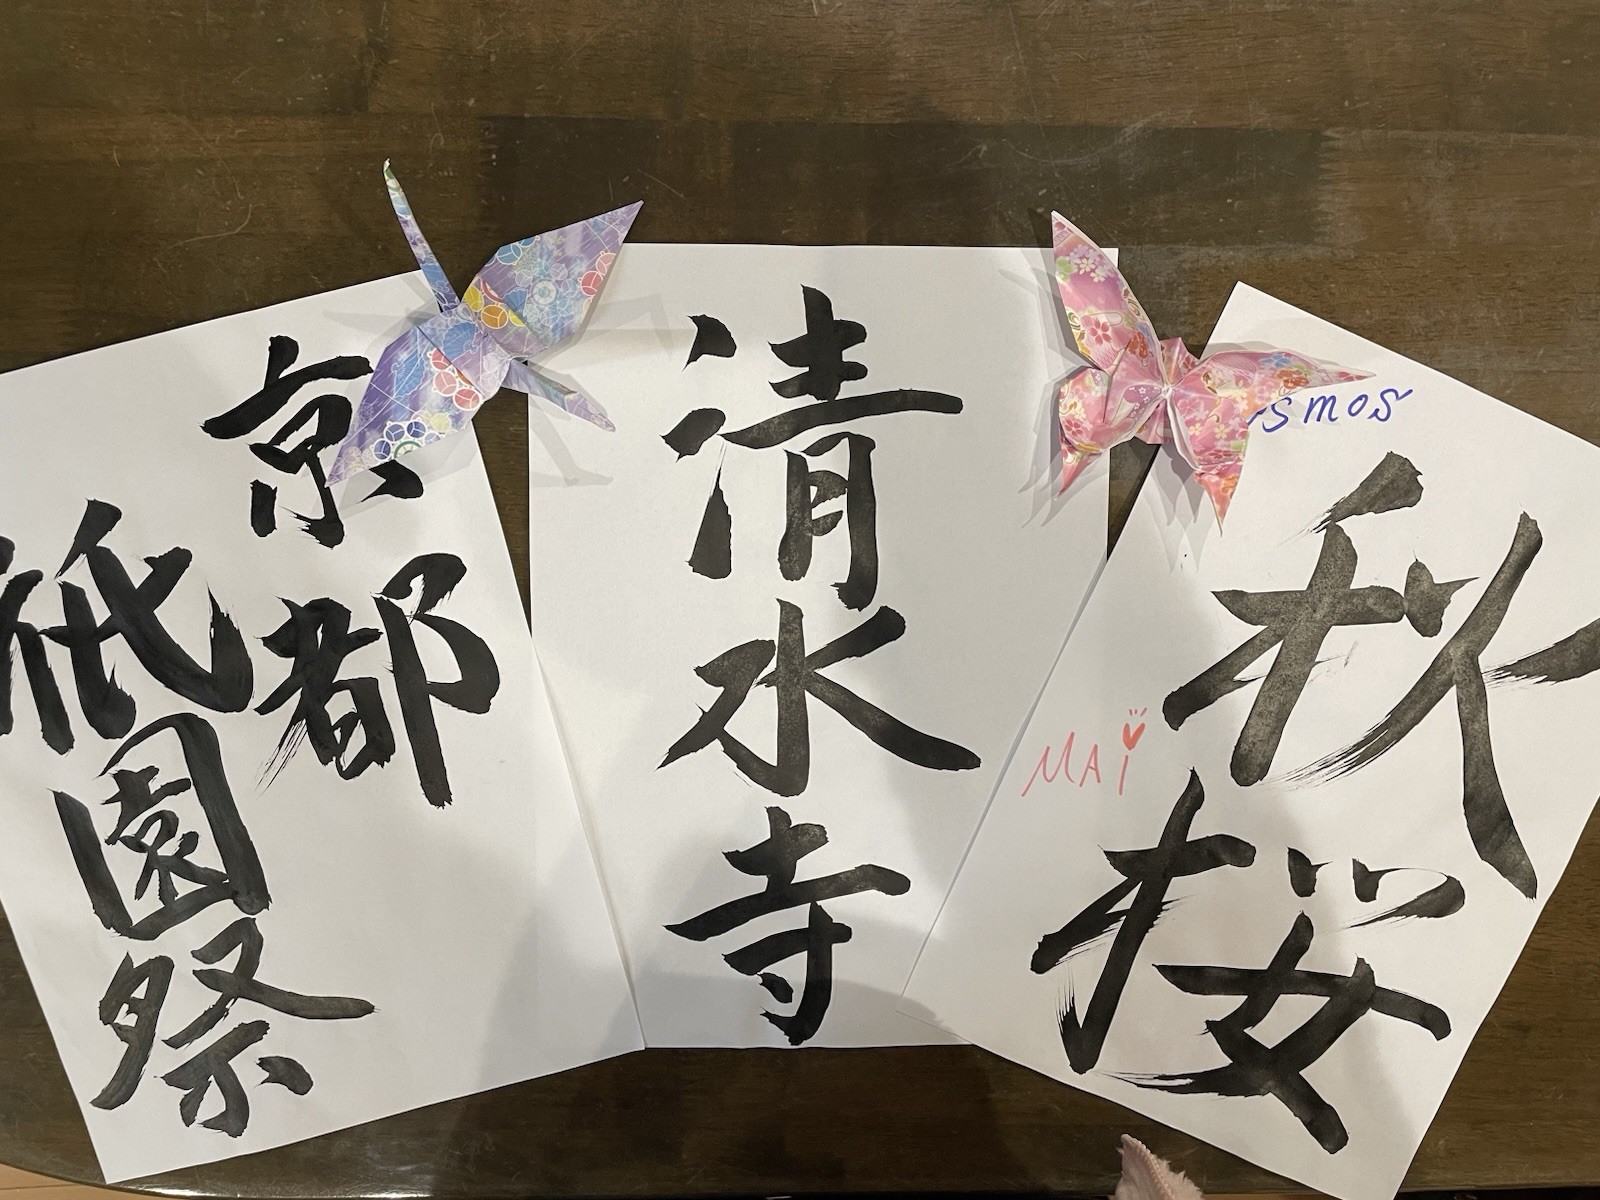 京都
祇園祭
清水寺
osmos
秋桜
MAi